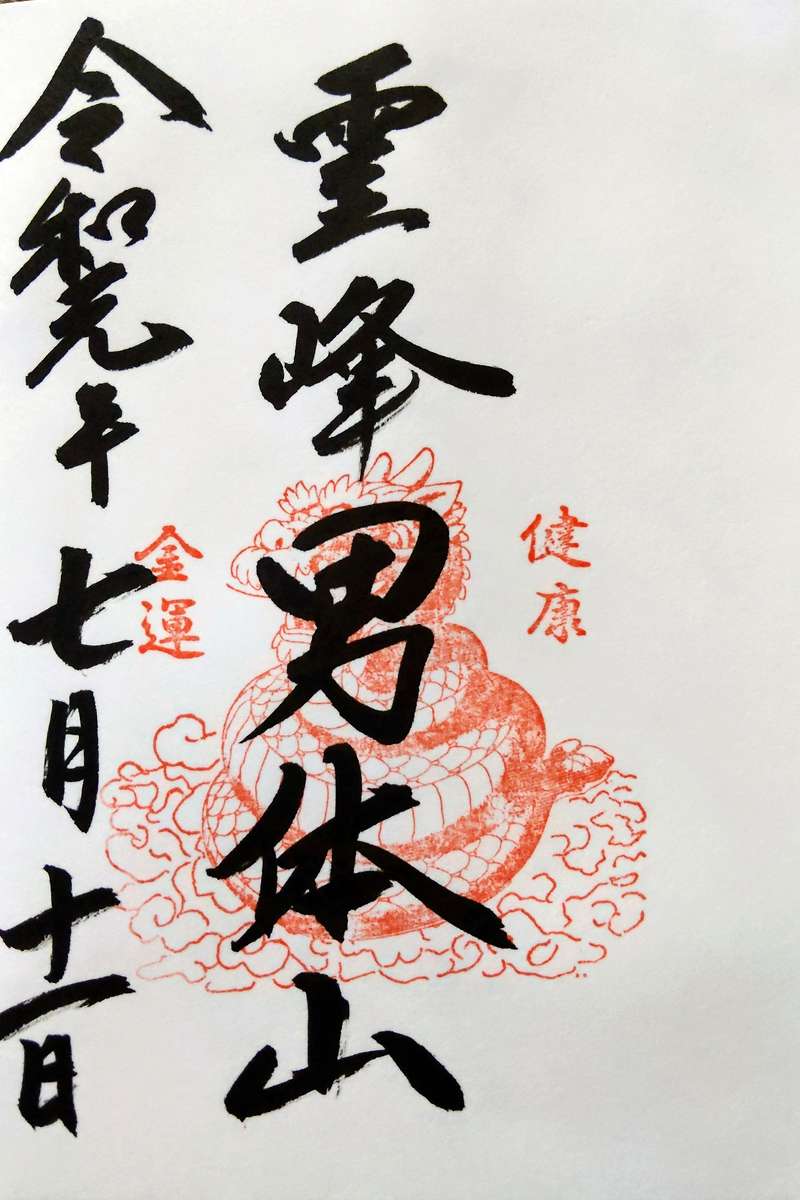 健康
霊峰男体山
金運
令和元年七月十一日